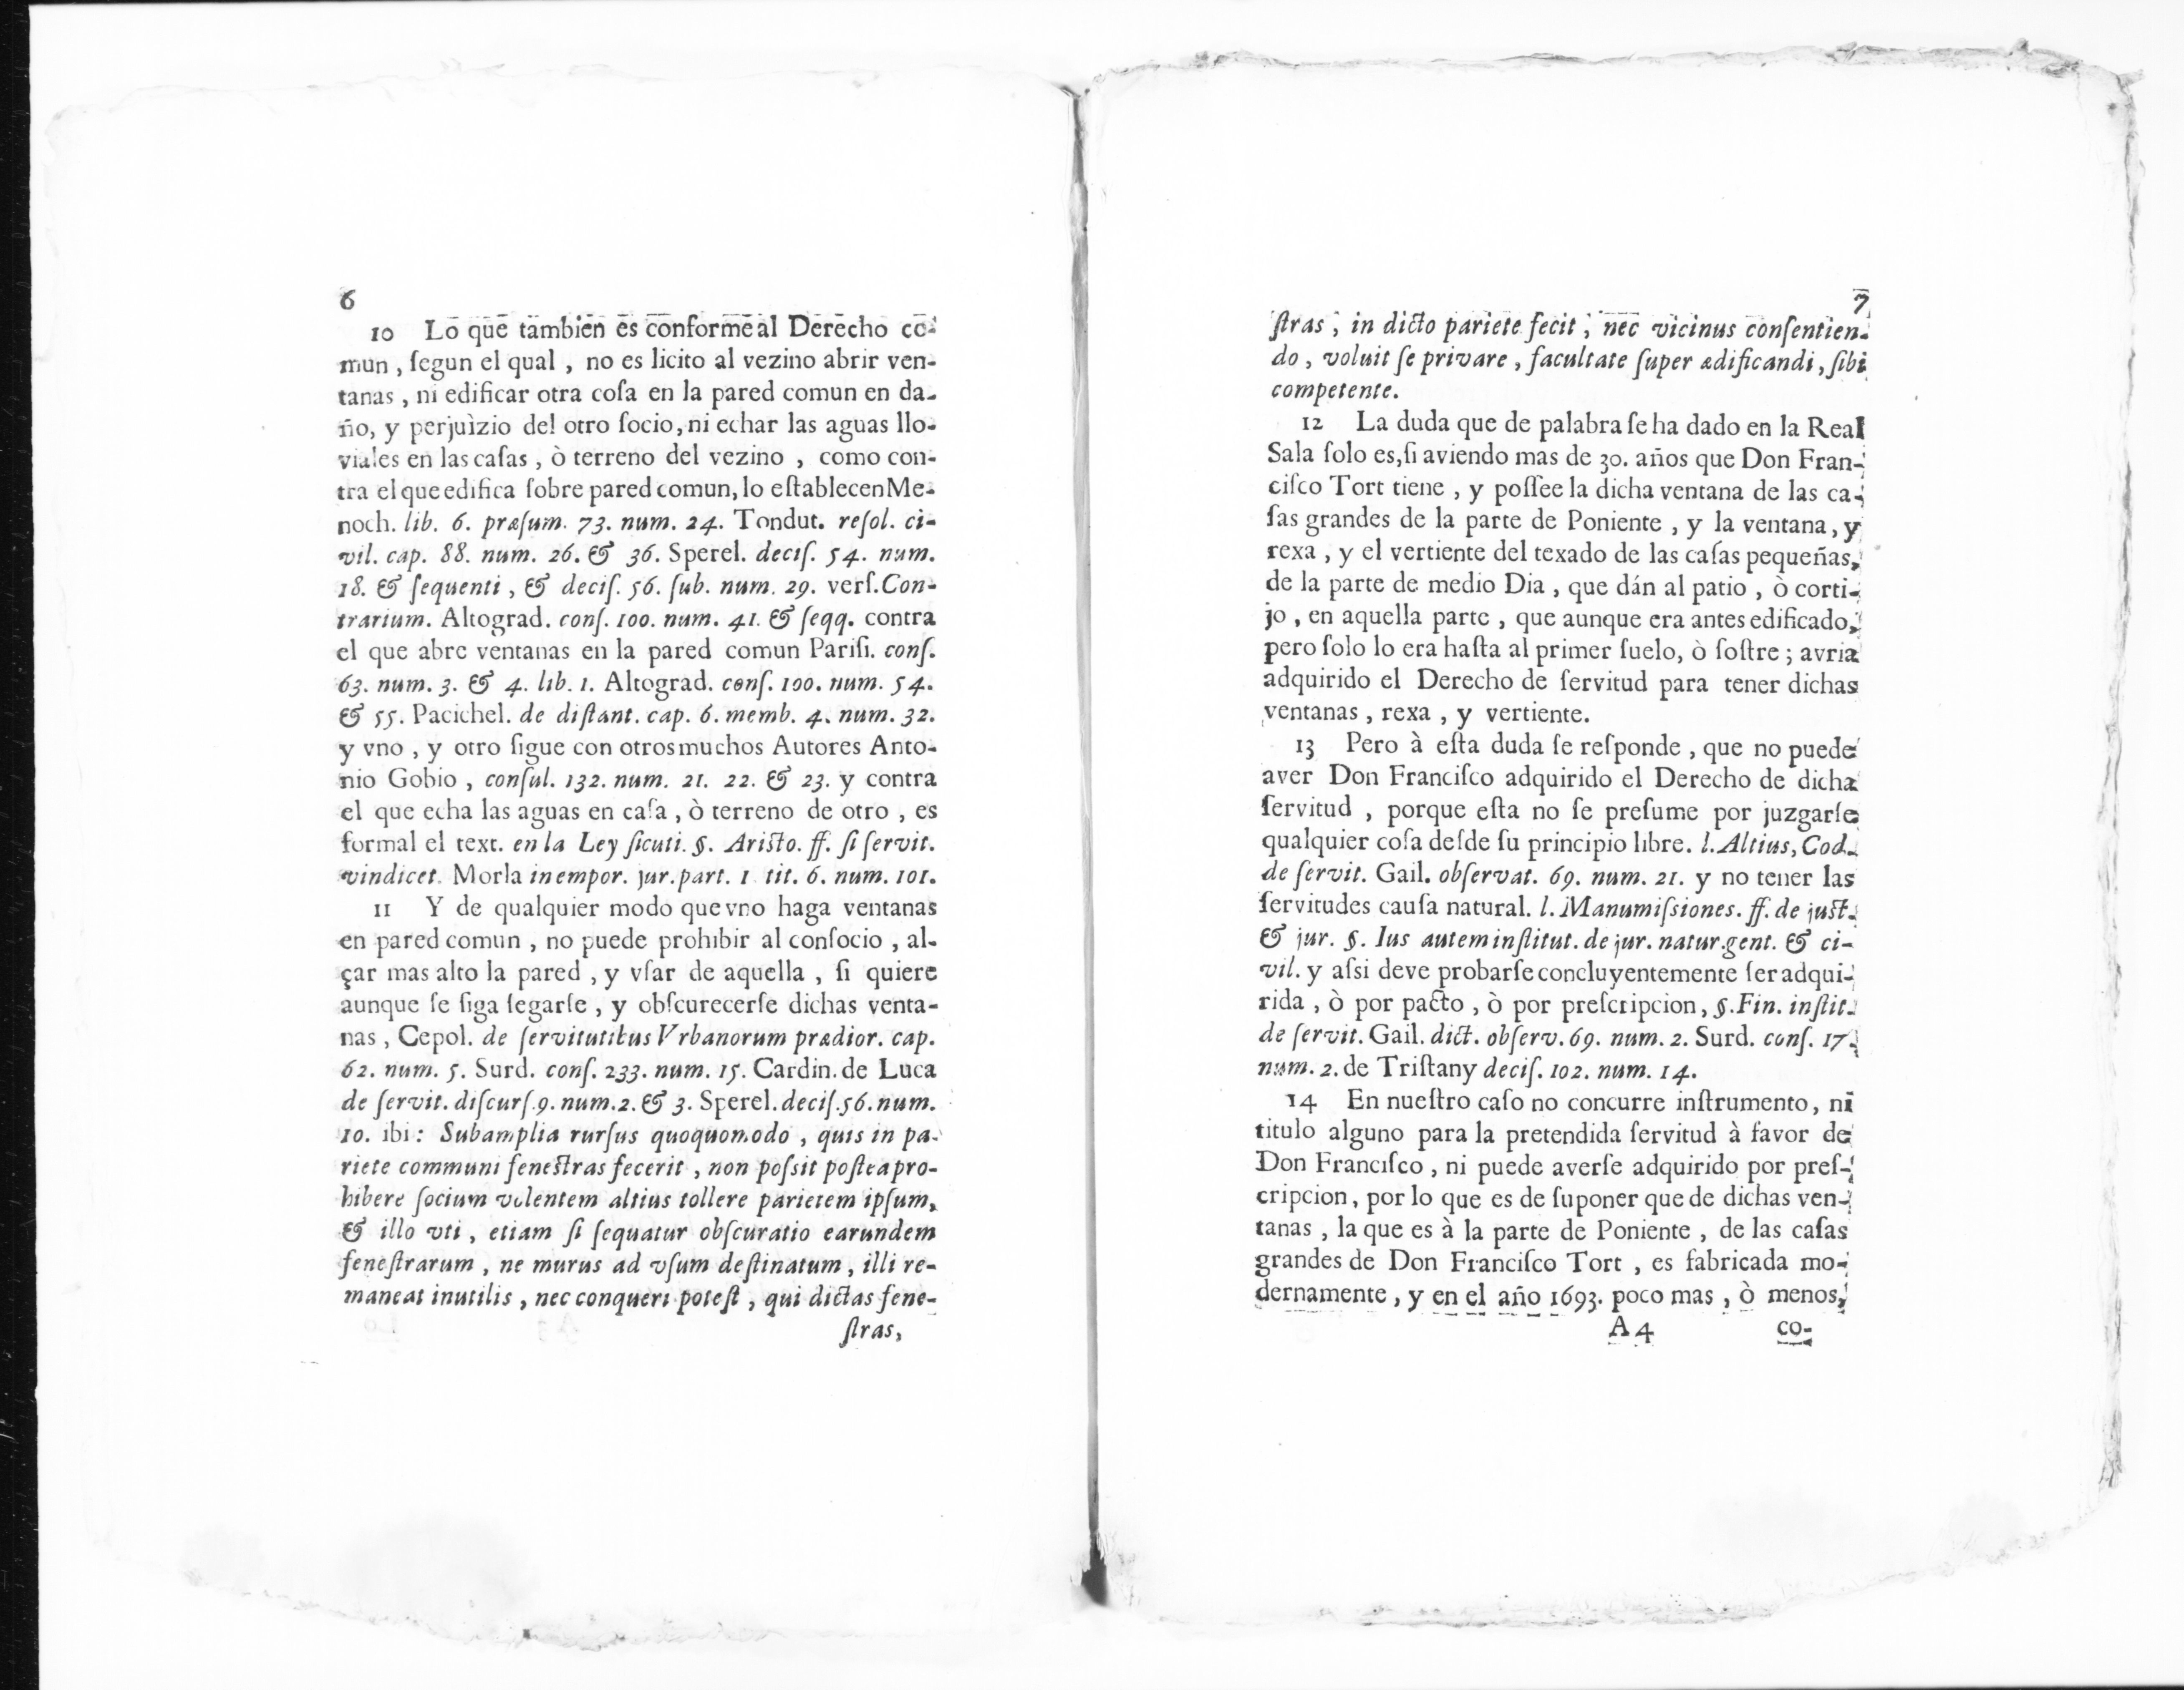 6
10 Lo que tambien es conforme al Derecho co-
mun , ſegun el qual , no es licito al vezino abrir ven-
tanas , ni edificar otra coſa en la pared comun en da-
ño, y perjuìzio del otro ſocio, ni echar las aguas llo-
viales en las caſas , ò terreno del vezino , como con-
tra el que edifica ſobre pared comun, lo eſtablecen Me-
noch. lib. 6. præſum. 73. num. 24. Tondut. reſol. ci-
vil. cap. 88. num. 26. & 36. Sperel. deciſ. 54. num.
18. & ſequenti , & deciſ. 56. ſub. num. 29. verſ. Con-
trarium. Altograd. conſ. 100. num. 41. & ſeqq. contra
el que abre ventanas en la pared comun Pariſi. conſ.
63. num. 3. & 4. lib. 1. Altograd. conſ. 100. num. 54.
& 55. Pacichel. de diſtant. cap. 6. memb. 4. num. 32.
y vno , y otro ſigue con otros muchos Autores Anto-
nio Gobio , conſul. 132. num. 21. 22. & 23. y contra
el que echa las aguas en caſa , ò terreno de otro , es
formal el text. en la Ley ſicuti. §. Ariſto. ff. ſi ſervit.
vindicet. Morla in empor. jur. part. 1 tit. 6. num. 101.
11 Y de qualquier modo que vno haga ventanas
en pared comun , no puede prohibir al conſocio , al-
çar mas alto la pared , y vſar de aquella , ſi quiere
aunque ſe ſiga ſegarſe , y obſcurecerſe dichas venta-
nas , Cepol. de ſervitutibus Vrbanorum prædior. cap.
62. num. 5. Surd. conſ. 233. num. 15. Cardin. de Luca
de ſervit. diſcurſ. 9. num. 2. & 3. Sperel. deciſ. 56. num.
10. ibi : Subamplia rurſus quoquomodo , quis in pa-
riete communi feneſtras fecerit , non poſsit poſtea pro-
hibere ſocium volentem altius tollere parietem ipſum,
& illo vti , etiam ſi ſequatur obſcuratio earundem
feneſtrarum , ne murus ad vſum deſtinatum , illi re-
maneat inutilis , nec conqueri poteſt , qui dictas fene-
ſtras,
7
ſtras , in dicto pariete fecit , nec vicinus conſentien-
do , voluit ſe privare , facultate ſuper ædificandi , ſibi
competente.
12 La duda que de palabra ſe ha dado en la Real
Sala ſolo es, ſi aviendo mas de 30. años que Don Fran-
ciſco Tort tiene , y poſſee la dicha ventana de las ca-
ſas grandes de la parte de Poniente , y la ventana, y
rexa , y el vertiente del texado de las caſas pequeñas,
de la parte de medio Dia , que dán al patio , ò corti-
jo , en aquella parte , que aunque era antes edificado,
pero ſolo lo era haſta al primer ſuelo, ò ſoſtre ; avria
adquirido el Derecho de ſervitud para tener dichas
ventanas , rexa , y vertiente.
13 Pero à eſta duda ſe reſponde , que no puede
aver Don Franciſco adquirido el Derecho de dicha
ſervitud , porque eſta no ſe preſume por juzgarſe
qualquier coſa deſde ſu principio libre. l. Altius, Cod.
de ſervit. Gail. obſervat. 69. num. 21. y no tener las
ſervitudes cauſa natural. l. Manumiſsiones. ff. de juſt.
& jur. §. Ius autem inſtitut. de jur. natur. gent. & ci-
vil. y aſsi deve probarſe concluyentemente ſer adqui-
rida , ò por pacto , ò por preſcripcion, §. Fin. inſtit.
de ſervit. Gail. dict. obſerv. 69. num. 2. Surd. conſ. 17.
num. 2. de Triſtany deciſ. 102. num. 14.
14 En nueſtro caſo no concurre inſtrumento, ni
titulo alguno para la pretendida ſervitud à favor de
Don Franciſco , ni puede averſe adquirido por preſ-
cripcion, por lo que es de ſuponer que de dichas ven-
tanas , la que es à la parte de Poniente , de las caſas
grandes de Don Franciſco Tort , es fabricada mo-
dernamente , y en el año 1693. poco mas , ò menos,
A 4 co-